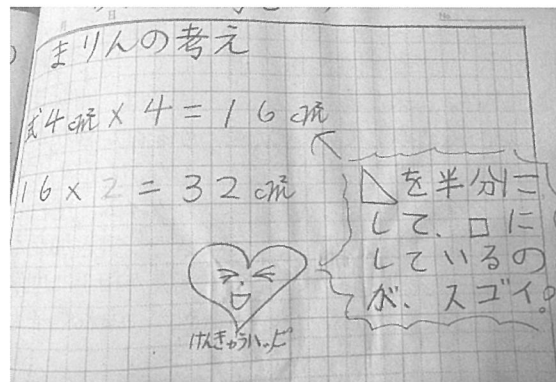 まりんの考え
式4cm²×4=16cm²
16×2=32cm²
◺を半分に
して、□に
しているの
が、スゴイ!
けんきゅうハッピ